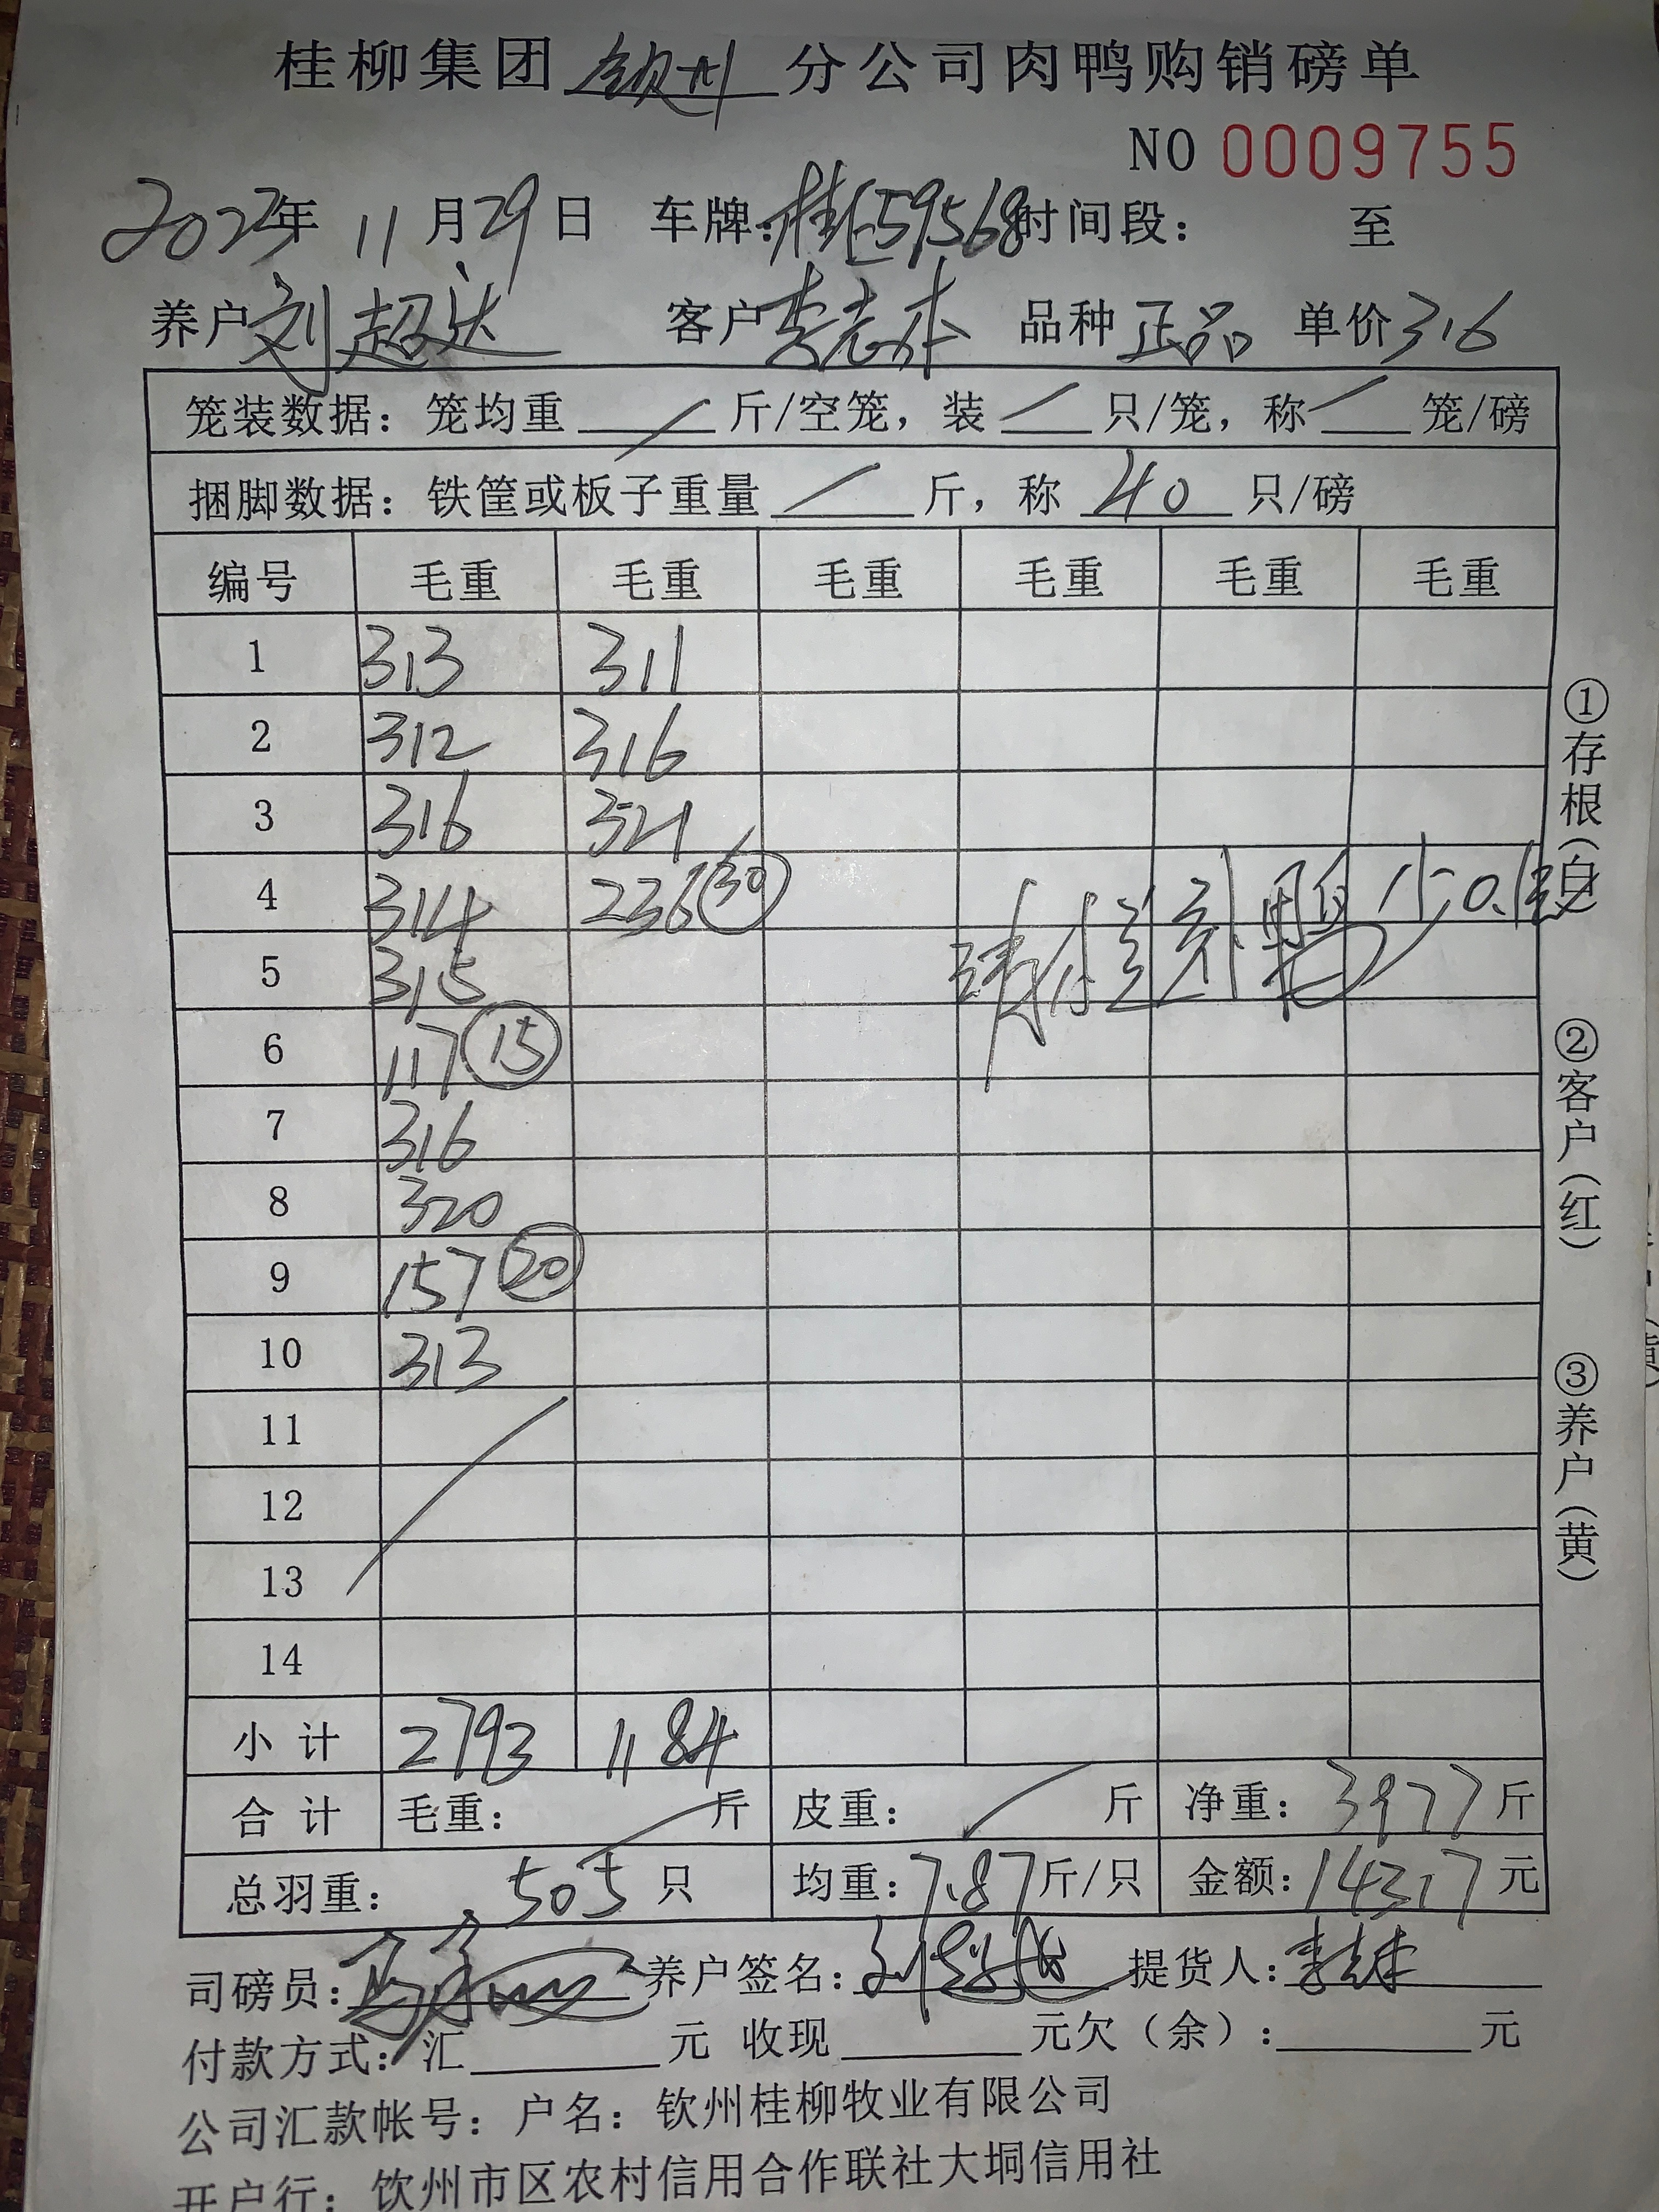 桂柳集团钦州分公司肉鸭购销磅单
NO 0009755
2023年 11月29日 车牌:桂E59568时间段: 至
养户刘超达 客户李志本 品种正品 单价3.6
笼装数据: 笼均重 斤/空笼, 装 只/笼, 称 笼/磅
捆脚数据: 铁筐或板子重量 斤, 称 40 只/磅
编号 毛重 毛重 毛重 毛重 毛重 毛重
1 313 311
2 312 316
3 316 321
4 314 236 30
鸭 少0.1
5 315
6 117 15
7 316
8 320
9 157 20
10 313
11
12
13
14
小计 2793 1184
合计 毛重: 斤 皮重: 斤 净重: 3977斤
总羽重: 505只 均重: 7.87斤/只 金额: 14317元
司磅员: 养户签名: 刘超达 提货人: 李志本
付款方式: 汇 元 收现 元欠(余): 元
公司汇款帐号: 户名: 钦州桂柳牧业有限公司
开户行: 钦州市区农村信用合作联社大垌信用社
①存根(白)
②客户(红)
③养户(黄)